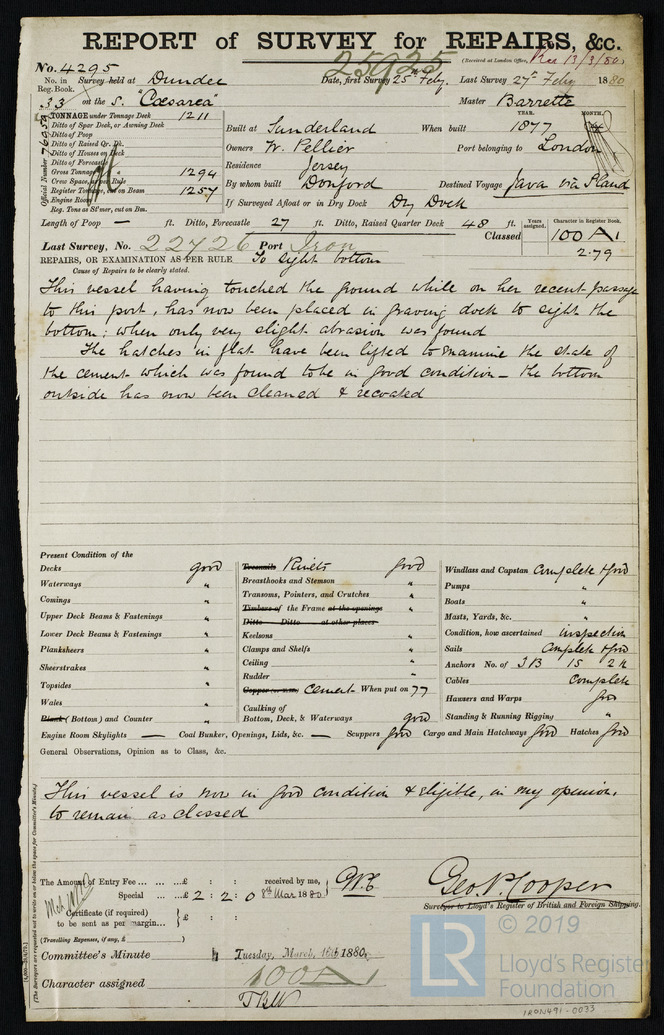 REPORT of SURVEY for REPAIRS, &c.
25925
(Received at London Office, Rec 13/3/80)
No. 4295
No. in Survey held at Dundee Date, first Survey 25th Feby. Last Survey 27th Feby 1880
Reg. Book.
33 on the S. "Cæsarea" Master Barrette
Official Number 76952
TONNAGE under Tonnage Deck 1211
Ditto of Spar Deck, or Awning Deck
Ditto of Poop
Ditto of Raised Qr. Dk.
Ditto of Houses on Deck
Ditto of Forecastle
Gross Tonnage 1294
Crew Space, as per Rule
Register Tonnage, cut on Beam 1257
Engine Room
Reg. Tons as St'mer, cut on Bm.
YEAR. MONTH.
Built at Sunderland When built 1877
Owners W. Pellier Port belonging to London
Residence Jersey
By whom built Doxford Destined Voyage Java via Island
If Surveyed Afloat or in Dry Dock Dry Dock
Length of Poop — ft. Ditto, Forecastle 27 ft. Ditto, Raised Quarter Deck 48 ft.
Years assigned. Character in Register Book.
Classed 100 A 1
2.79
Last Survey, No. 22726 Port Iron
REPAIRS, OR EXAMINATION AS PER RULE To sight bottom
Cause of Repairs to be clearly stated.
This vessel having touched the ground while on her recent passage
to this port, has now been placed in graving dock to sight the
bottom; when only very slight abrasion was found
The hatches in flat have been lifted to examine the state of
the cement which was found to be in good condition – the bottom
outside has now been cleaned & recoated
Present Condition of the
Decks good
Waterways "
Comings "
Upper Deck Beams & Fastenings "
Lower Deck Beams & Fastenings "
Planksheers "
Sheerstrakes "
Topsides "
Wales "
Plank (Bottom) and Counter "
Treenails Rivets good
Breasthooks and Stemson "
Transoms, Pointers, and Crutches "
Timbers of the Frame at the openings "
Ditto Ditto at other places
Keelsons "
Clamps and Shelfs "
Ceiling "
Rudder "
Cement When put on 77
Caulking of
Bottom, Deck, & Waterways good
Windlass and Capstan Complete & good
Pumps "
Boats "
Masts, Yards, &c. "
Condition, how ascertained inspection
Sails Complete & good
Anchors No. of 3 B 1 S 2 K
Cables Complete
Hawsers and Warps good
Standing & Running Rigging "
Engine Room Skylights — Coal Bunker, Openings, Lids, &c. — Scuppers good Cargo and Main Hatchways good Hatches good
General Observations, Opinion as to Class, &c.
This vessel is now in good condition & eligible, in my opinion,
to remain as classed
The Amount of Entry Fee ... £ : : received by me,
Special ... £ 2 : 2 : 0 8th Mar 1880 W.C
Certificate (if required) £ : :
to be sent as per margin...
(Travelling Expenses, if any, £ )
Geo. P. Cooper
Surveyor to Lloyd's Register of British and Foreign Shipping.
Committee's Minute Tuesday, March, 16th 1880.
Character assigned 100 A
T B W
(The Surveyors are requested not to write on or below the space for Committee's Minute.)
© 2019
LR
Lloyd's Register
Foundation
IRON491-0033